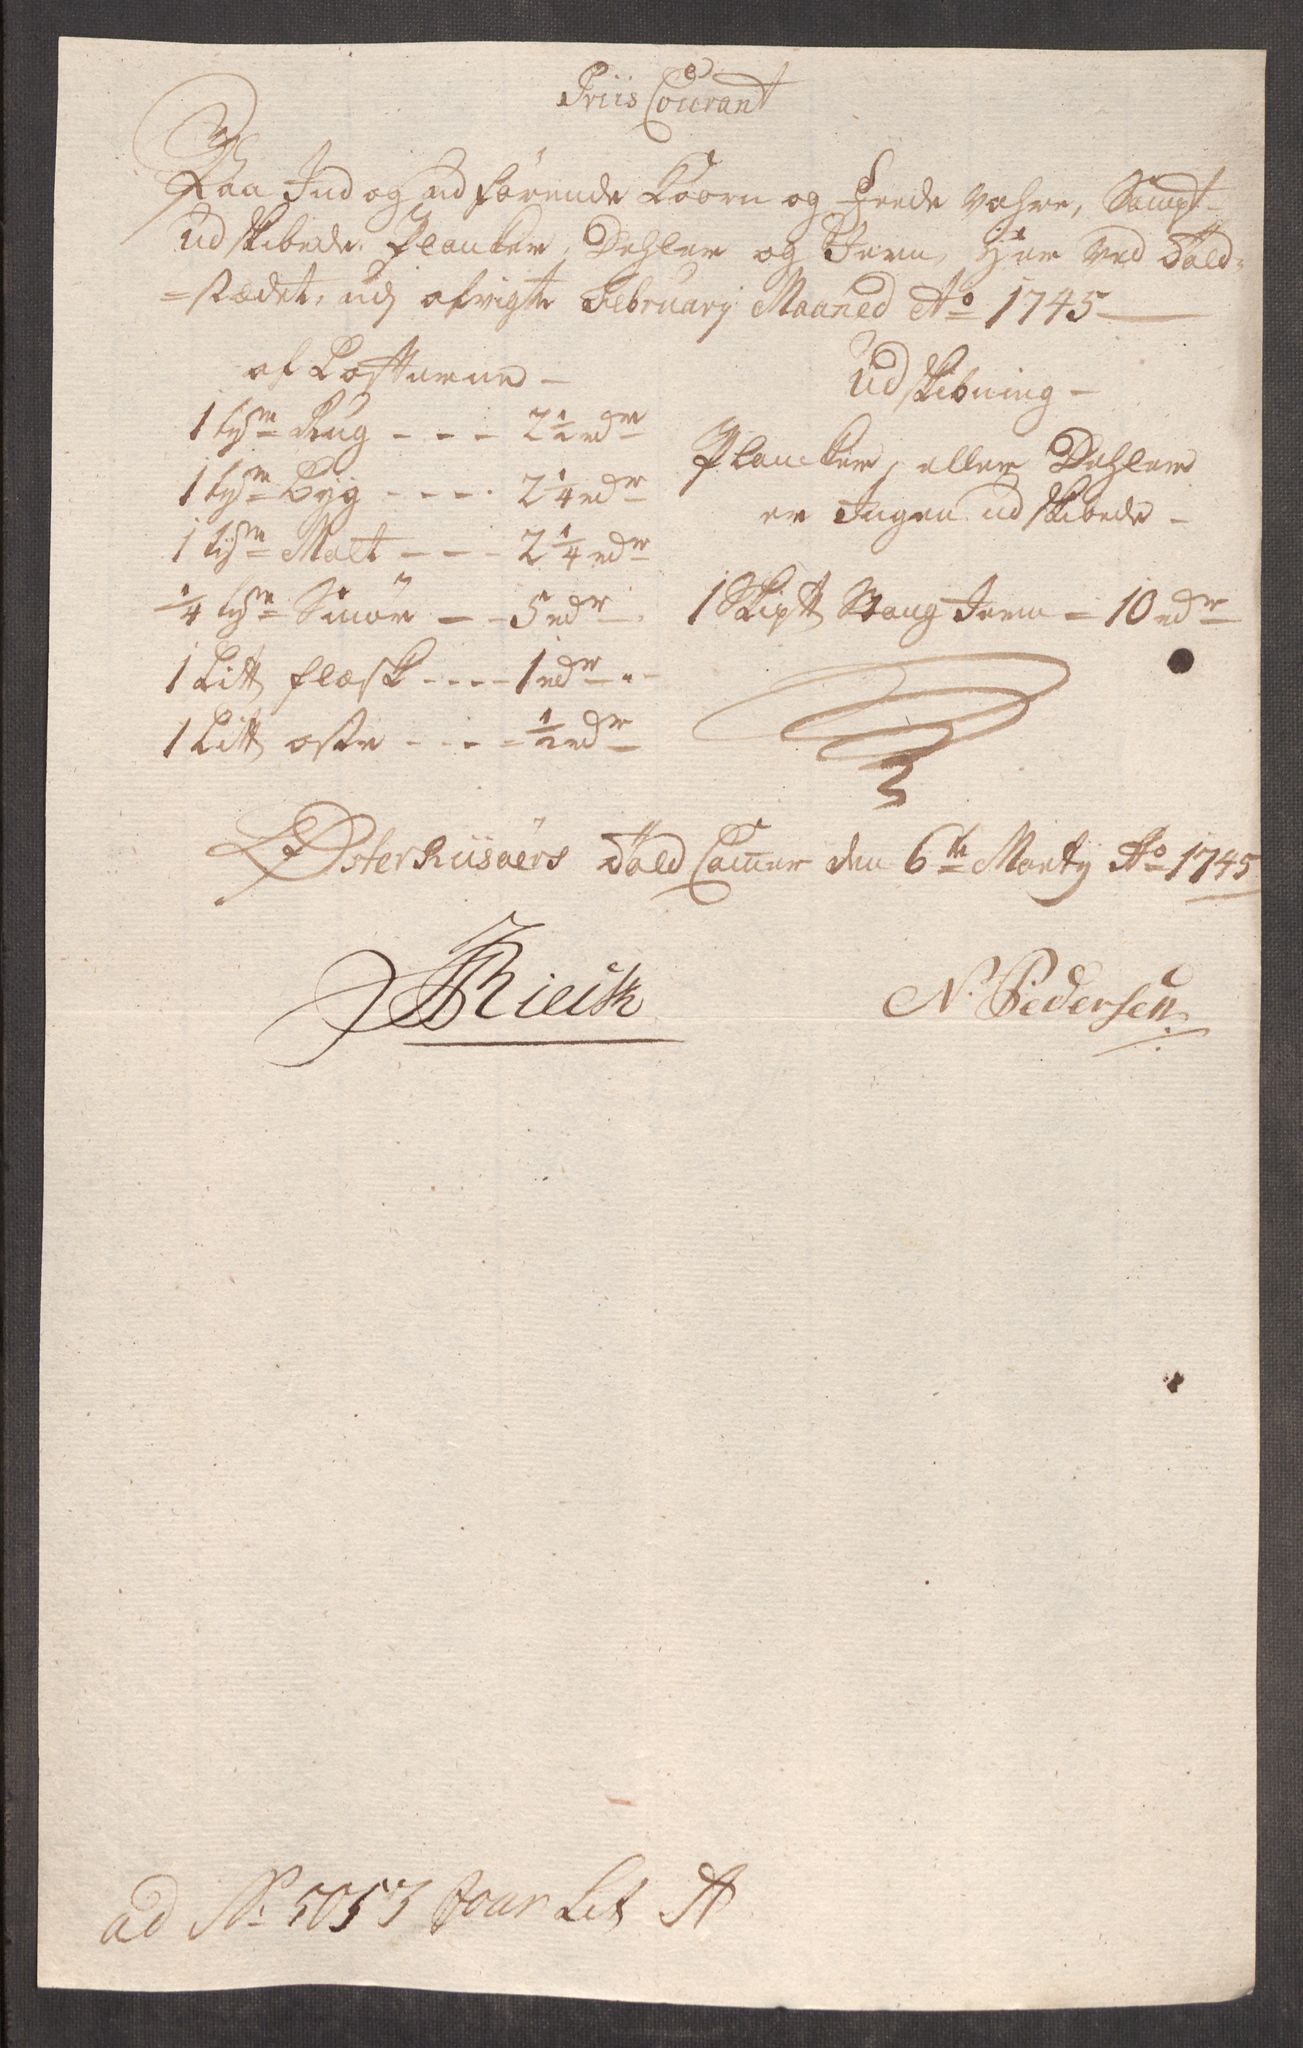 Priis Courant
Paa Ind og udførende Koorn og Feede Vahre, Sampt
udskibede Plancker, Dehler og Jern, Her ved Told-
=stædet, udj afvigte February Maaned Ao 1745
af Lofterne -
1 tøn Rug - - - 2 1/2 rdr
1 tøn Byg - - - - 2 1/4 rdr
1 tøn Malt - - - 2 1/4 rdr
1/4 tøn Smør - - 5 rdr
1 Litt flæsk - - - - 1 rdr - -
1 Litt oste - - - - 1/2 rdr
Udskibning -
Plancker, eller Dehler
er Ingen udskibede -
1 Skiptt Stang Jern - 10 rdr
Østerriisøers Told Camer den 6te Marty Ao 1745
N. Pedersen
ad No 5053 Jour Lit A